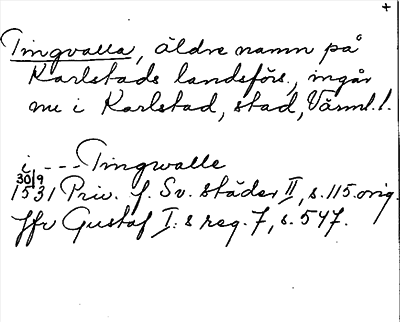 +
Tingvalla, äldre namn på
Karlstads landsförs., ingår
nu i Karlstad, stad, Värml. l.
i --- Tingwalle
30/9
1531 Priv. f. Sv. städer II, s. 115. orig.
Jfr Gustaf I:s reg. 7, s. 547.